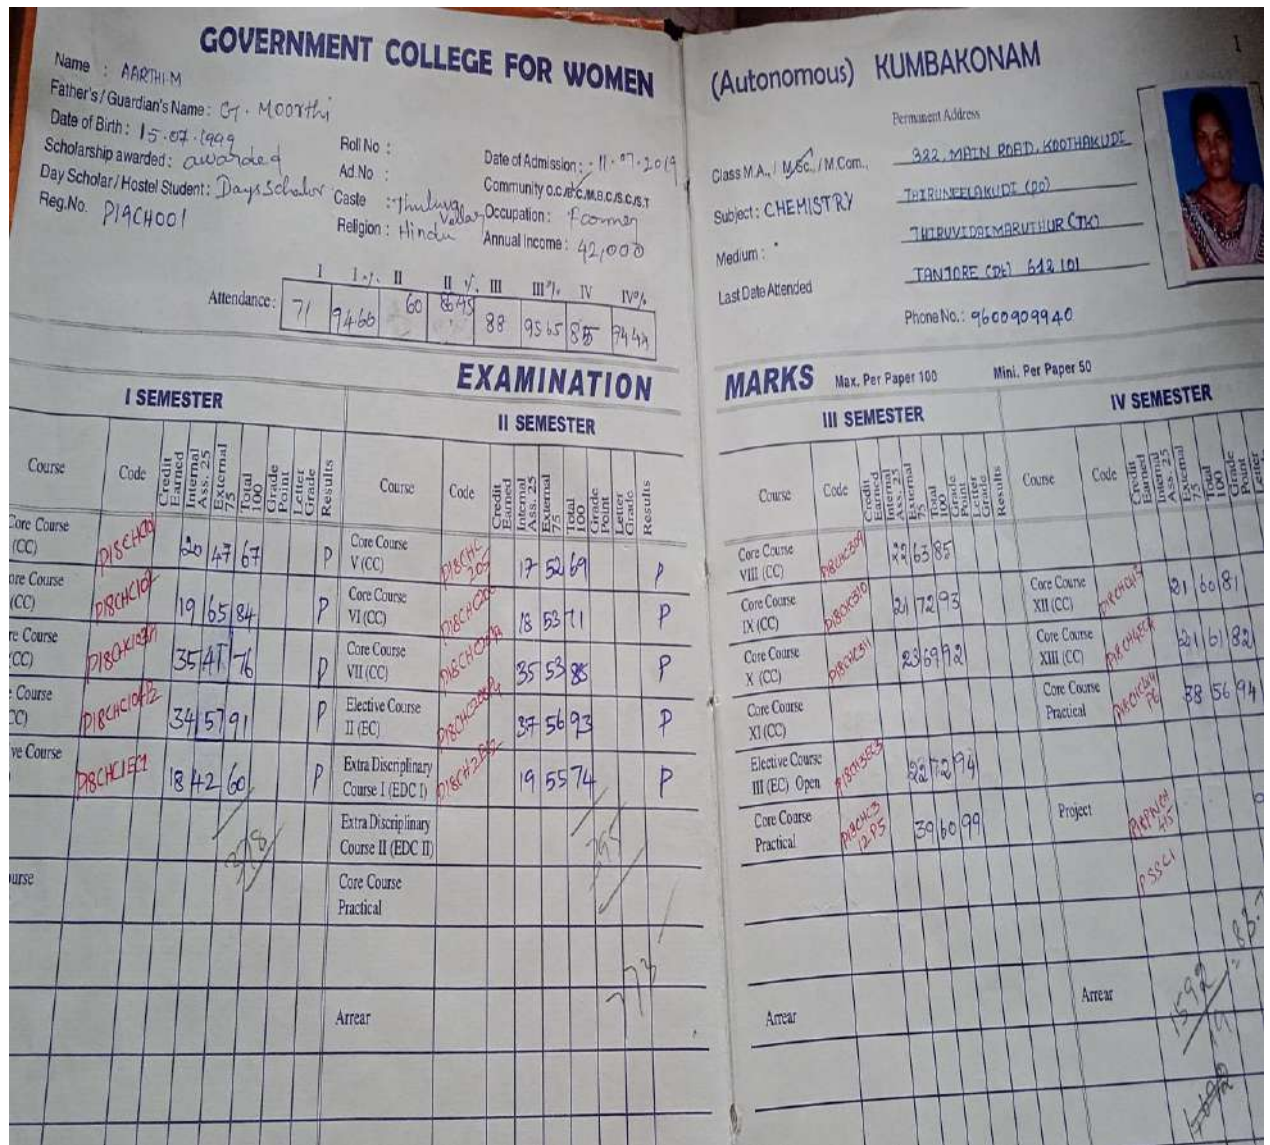 GOVERNMENT COLLEGE FOR WOMEN
(Autonomous) KUMBAKONAM
1
Name : AARTHI.M
Father's / Guardian's Name : G. Moorthi
Date of Birth : 15.07.1999
Scholarship awarded : awarded
Day Scholar / Hostel Student : Days Scholar
Reg.No. P19CH001
Roll No :
Ad.No :
Caste : Thuluva Vellar
Religion : Hindu
Date of Admission : 11.07.2019
Community o.c./B.C./M.B.C./S.C./S.T
Occupation : Farmer
Annual Income : 42,000
Class M.A., / M.Sc., / M.Com.,
Subject : CHEMISTRY
Medium :
Last Date Attended
Permanent Address
322, MAIN ROAD, KOOTHAKUDI
THIRUNEELAKUDI (PO)
THIRUVIDAIMARUTHUR (TK)
TANJORE (Dt) 612 101
Phone No. : 9600909940
I I % II II % III III % IV IV %
Attendance : 71 94.66 60 88 95.65 85 94.44
EXAMINATION MARKS Max. Per Paper 100 Mini. Per Paper 50
I SEMESTER
Course Code Credit Earned Internal Ass. 25 External 75 Total 100 Grade Point Letter Grade Results
Core Course (CC) 20 47 67 P
ore Course (CC) P18CHC102 19 65 84 P
re Course CC) 35 41 76 P
Course CC) 34 57 91 P
ve Course P18CHC1EC1 18 42 60 P
378
urse
II SEMESTER
Course Code Credit Earned Internal Ass. 25 External 75 Total 100 Grade Point Letter Grade Results
Core Course V (CC) P18CHC205 17 52 69 P
Core Course VI (CC) 18 53 71 P
Core Course VII (CC) 35 53 88 P
Elective Course II (EC) 37 56 93 P
Extra Discriplinary Course I (EDC I) 19 55 74 P
Extra Discriplinary Course II (EDC II) 395
Core Course Practical
773
Arrear
III SEMESTER
Course Code Credit Earned Internal Ass. 25 External 75 Total 100 Grade Point Letter Grade Results
Core Course VIII (CC) P18CHC309 22 63 85
Core Course IX (CC) P18CHC310 21 72 93
Core Course X (CC) P18CHC311 23 69 92
Core Course XI (CC)
Elective Course III (EC) Open P18CH3EC3 22 72 94
Core Course Practical P18CHC3 12 P5 39 60 99
Arrear
IV SEMESTER
Course Code Credit Earned Internal Ass. 25 External 75 Total 100 Grade Point Letter
Core Course XII (CC) 21 60 81
Core Course XIII (CC) 21 61 82
Core Course Practical 38 56 94
Project
PSSC1
Arrear
1592